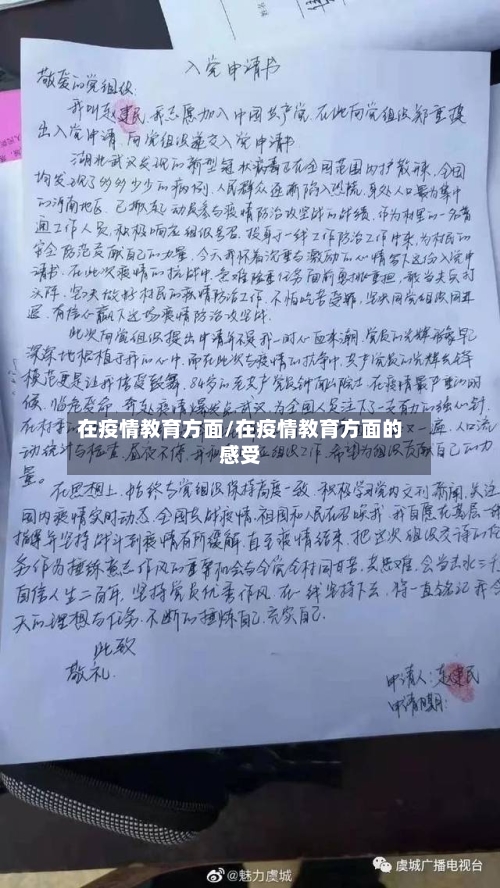 入党申请书
敬爱的党组织:
我叫赵建民,我志愿加入中国共产党,在此向党组织郑重提
出入党申请,向党组织递交入党申请书。
湖北武汉发现的新型冠状病毒正在全国范围内扩散来,全国
均发现了多多少少的病例,人民群众逐渐陷入恐慌,身处人口最为集中
的河南地区,已掀起了动员参与疫情防治攻坚战的战线,作为村里的一名普
通工作人员,积极响应组织号召,投身于一线工作防治工作中来,为村民的
安全防范贡献自己的力量,今天我怀着沉重与激动的心情写下这份入党申
请书,在此次疫情的抗战中,急难险重任务面前勇挑重担,敢当先兵对
坚决做好村民的疫情防治工作,不怕吃苦受罪,坚决同党组织同
有信心赢下这场疫情防治攻坚战。
此次向党组织提出申请并不是我一时心血来潮,党员的光辉形象早已
深深地根植于我的心中,而在此次与疫情的抗争中,共产党员的光辉先锋
模范更是让我倍受鼓舞,84岁的老共产党员钟南山院士,在疫情最严重的时
候,临危受命,奔赴疫情爆发点武汉,为全国人民注了一支有力的强心针,
在村
人口流
动统计与检查,昼夜不停,
组织工作,希望为组织贡献自己的力
量。
在疫情教育方面/在疫情教育方面的
感受
在思想上,始终与党组织保持高度一致,积极学习党内文刊新闻,关注
国内疫情实时动态,全国在战疫情,祖国和人民在召唤我,我自愿在基层一线
指挥年坚持战斗到疫情有所缓解,直至疫情结束,把这次组织交待的任
务作为锤炼意志作风的重要机会与全党全村同甘苦,共患难,会当击水三千
自信人生二百年,坚持党员优秀作风,在一线坚持下去,将一直铭记我今
天的理想与任务,不断的锤炼自己,充实自己。
此致
敬礼
申请人:赵建民
申请日期:
@魅力虞城
虞城广播电视台